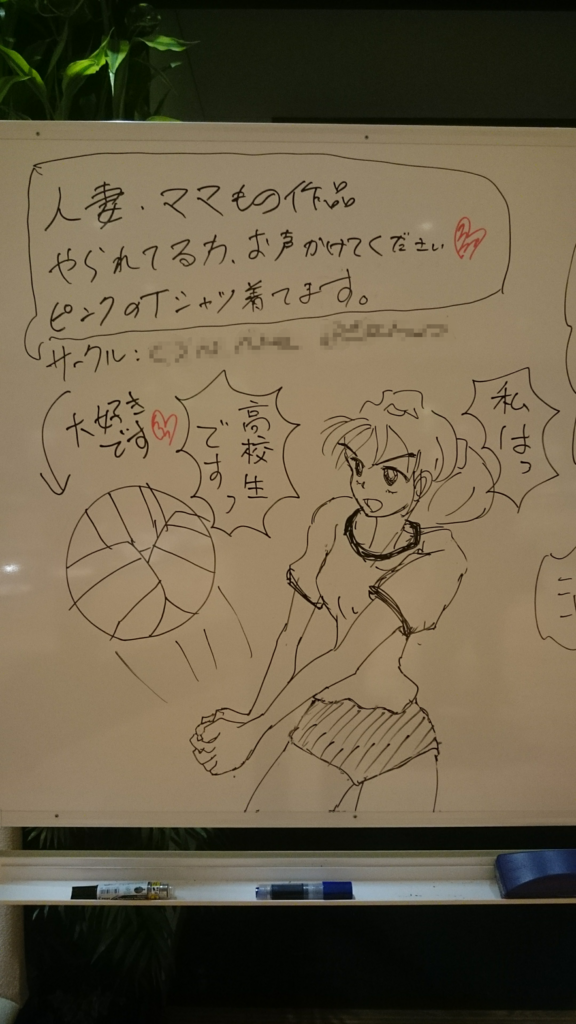 人妻・ママもの作品
やられてる方、お声かけてください
ピンクのTシャツ着てます。
サークル:
大好き
です
私はっ
高校生
ですっ